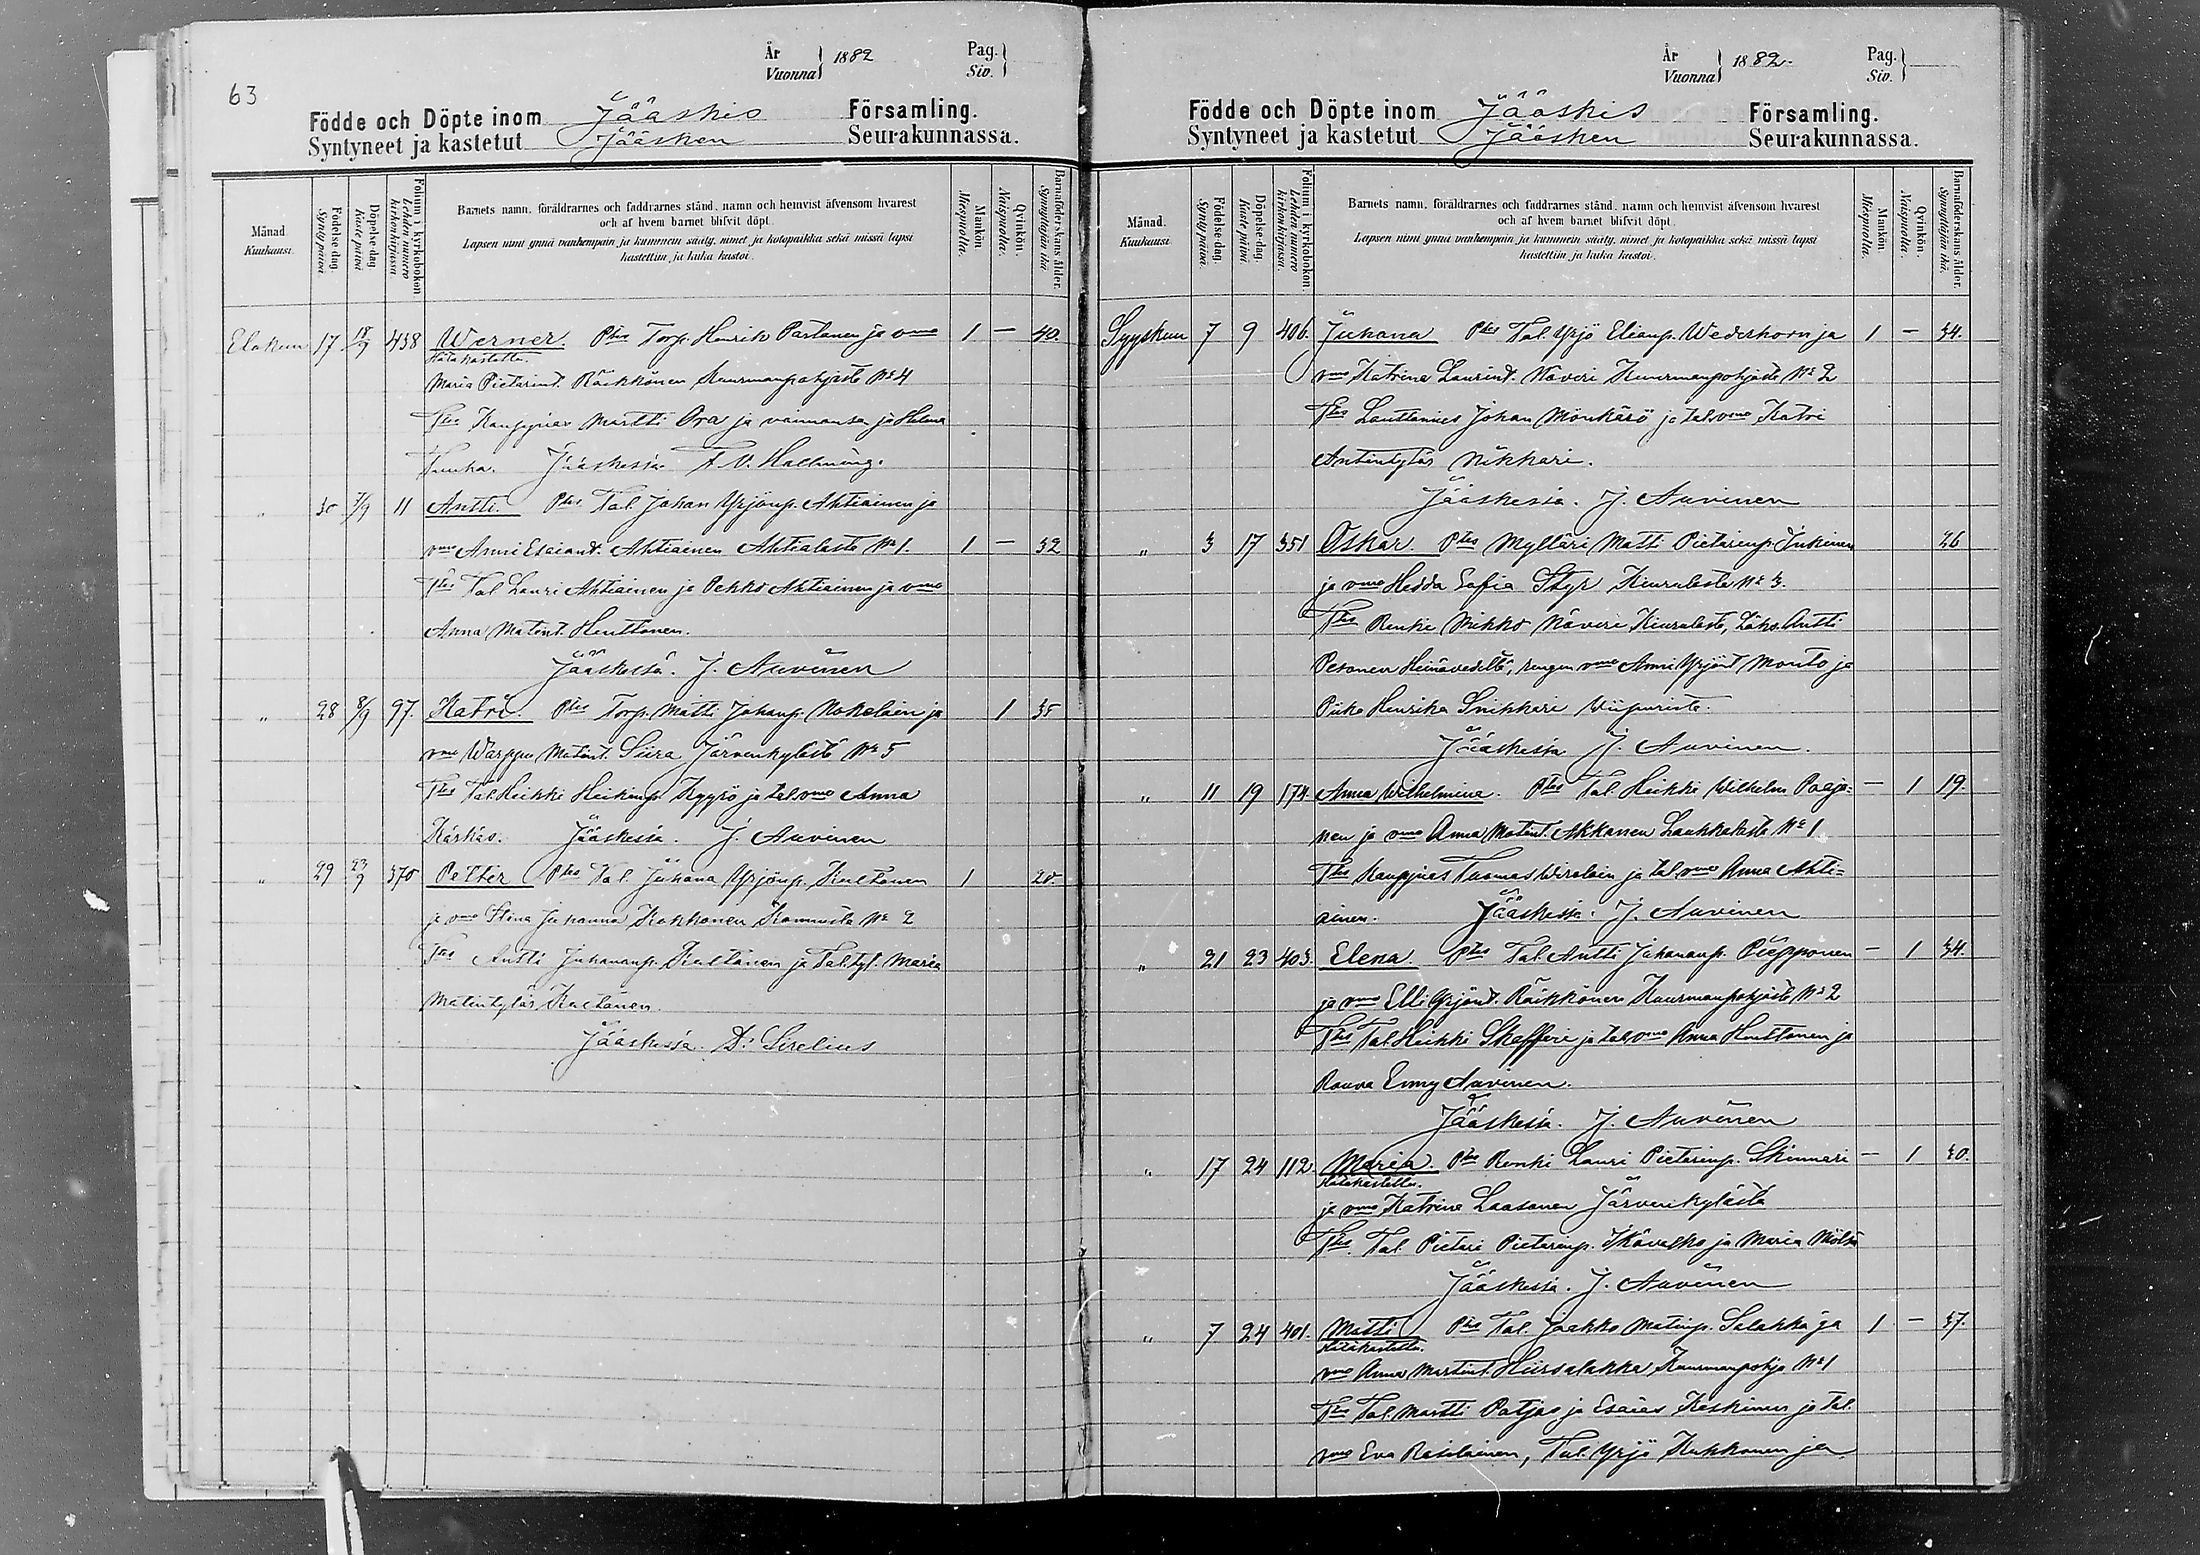 63
År
Vuonna } 1882
Pag.
Siv. }
Födde och Döpte inom Jääskis Församling.
Syntyneet ja kastetut Jääsken Seurakunnassa.
Månad.
Kuukausi.
Födelse-dag.
Syntypäivä.
Döpelse-dag
Kaste päivä
Folium i kyrkoboken
Lehden numero kirkonkirjassa
Barnets namn, föräldrarnes och faddrarnes stånd, namn och hemvist äfvensom hvarest
och af hvem barnet blifvit döpt.
Lapsen nimi ynnä vanhempain ja kummein sääty, nimet ja kotopaikka sekä missä lapsi
kastettiin ja kuka kastoi.
Mankön.
Miespuolta.
Qvinkön.
Naispuolta.
Barnaföderskans ålder.
Synnyttäjän ikä.
Elokuu 17 18/9 438 Werner. Ptes Torp. Henrik Partanen ja vmo 1 — 40.
Hätäkastettu.
Maria Pietarint. Räikkönen Kuurmanpohjasta No 4
Tus Kauppias Martti Ora ja vaimonsa ja Helena
Jääskessä F. V. Hallming.
„ 30 7/9 11 Antti. Ptes Tal. Johan Yrjönp. Ahtiainen ja
vmo Anni Esaiant. Ahtiainen Ahtialasta No 1. 1 — 32
Tus Tal. Lauri Ahtiainen ja Pekko Ahtiainen ja vmo
Anna Matint. Henttonen.
Jääskessä. J. Auvinen
„ 28 8/9 97. Katri. Ptes Torp. Matti Johanp. Nokelain ja 1 35
vmo Warppu Matint. Siira Järvenkylästä No 5
Tus Tal. Heikki Heikinp. Kyyrö ja tal. vmo Anna
Kärkäs. Jääskessä. J. Auvinen
„ 29 23/9 370 Petter Ptes Tal. Juhana Yrjönp. Kultanen 1 20.
ja vmo Stina Juhanna Kokkonen No 2
Tus Antti Juhananp. Kultanen ja Tal. tyt. Maria
Matintytär Kultanen.
Jääskessä. D: Sirelius
År
Vuonna } 1882
Pag.
Siv. }
Födde och Döpte inom Jääskis Församling.
Syntyneet ja kastetut Jääsken Seurakunnassa.
Månad.
Kuukausi.
Födelse-dag.
Syntypäivä.
Döpelse-dag.
Kaste päivä
Folium i kyrkoboken.
Lehden numero kirkonkirjassa.
Barnets namn, föräldrarnes och faddrarnes stånd, namn och hemvist äfvensom hvarest
och af hvem barnet blifvit döpt.
Lapsen nimi ynnä vanhempain ja kummein sääty, nimet ja kotopaikka sekä missä lapsi
kastettiin ja kuka kastoi.
Mankön.
Miespuolta.
Qvinkön.
Naispuolta.
Barnaföderskans ålder.
Synnyttäjän ikä.
Syyskuu 7 9 406. Juhana Ptes Tal. Yrjö Elianp. Wederhorn ja 1 — 34.
vmo Katrina Laurint. Näveri Kuurmanpohjasta No 2
Tus Johan Mönkärö ja tal. vmo Katri
Antintytär Nikkari.
Jääskessä. J. Auvinen
„ 3 17 351 Oskar. Ptes Mylläri Matti Pietarinp. Inkinen 26
ja vmo Hedda Sofia Styr Kiurulasta No 3.
Tus Renki Mikko Näveri Kiurulasta, Antti
Pesonen Heinävedeltä, rengin vmo Anni Yrjönt Monto ja
Piika Henrika Snikkari Wiipurista.
Jääskessä J. Auvinen.
„ 11 19 174 Anna Wilhelmina. Ptes Tal. Heikki Wilhelm Paaja- — 1 19.
nen ja vmo Anna Matint. Akkanen Laukkalasta No 1
Tus Kauppias Tuomas Wirolain ja tal. vmo Anna Ahti-
ainen. Jääskessä. J. Auvinen
„ 21 23 403. Elena Ptes Tal. Antti Juhananp. Piepponen — 1 34.
ja vmo Elli Yrjönt. Räikkönen Kuurmanpohjasta No 2
Tus Tal. Heikki Skefferi ja tal. vmo Anna Henttonen ja
Rouva Emmy Auvinen.
Jääskessä. J. Auvinen
„ 17 24 112. Maria. Ptes Renki Lauri Pietarinp. Skinnari — 1 30.
Hätäkastettu.
ja vmo Katrina Laasonen Järvenkylästä
Tus. Tal. Pietari Pietarinp. Ikävalko ja Maria Mölsä
Jääskessä. J. Auvinen
„ 7 24 401. Matti Ptes Tal. Jaakko Matinp. Salakka ja 1 — 37.
Hätäkastettu.
vmo Anna Martint. Hiirsalakka Kuurmanpohja No 1
Tus Tal. Martti Patjas ja Esaias Keskinen ja tal.
vmo Eva Rasilainen, Tal. Yrjö Kukkonen ja